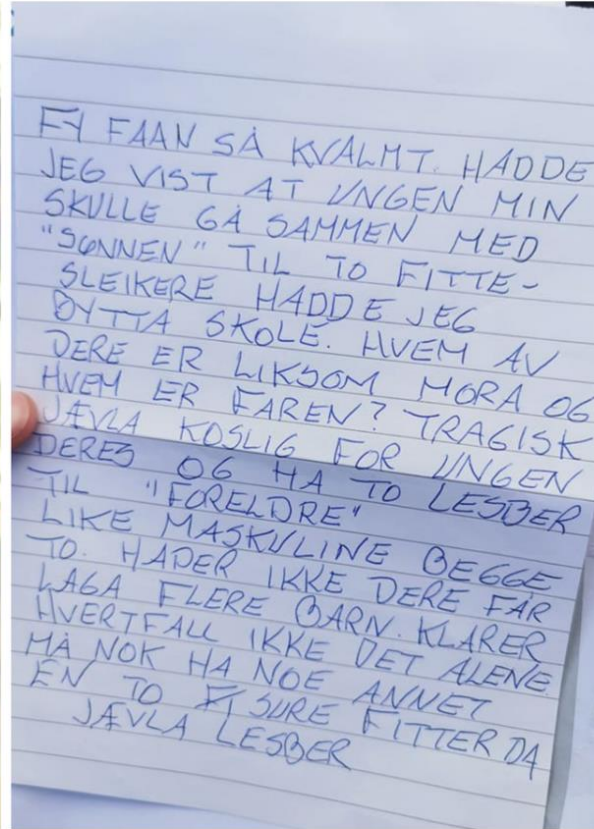 FY FAAN SÅ KVALMT. HADDE
JEG VIST AT UNGEN MIN
SKULLE GÅ SAMMEN MED
"SØNNEN" TIL TO FITTE-
SLEIKERE HADDE JEG
BYTTA SKOLE. HVEM AV
DERE ER LIKSOM MORA OG
HVEM ER FAREN? TRAGISK
JÆVLA KOSLIG FOR UNGEN
DERES OG HA TO LESBER
TIL "FORELDRE"
LIKE MASKULINE BEGGE
TO. HÅPER IKKE DERE FÅR
LAGA FLERE BARN. KLARER
HVERTFALL IKKE DET ALENE
MÅ NOK HA NOE ANNET
EN TO SURE FITTER DA
JÆVLA LESBER